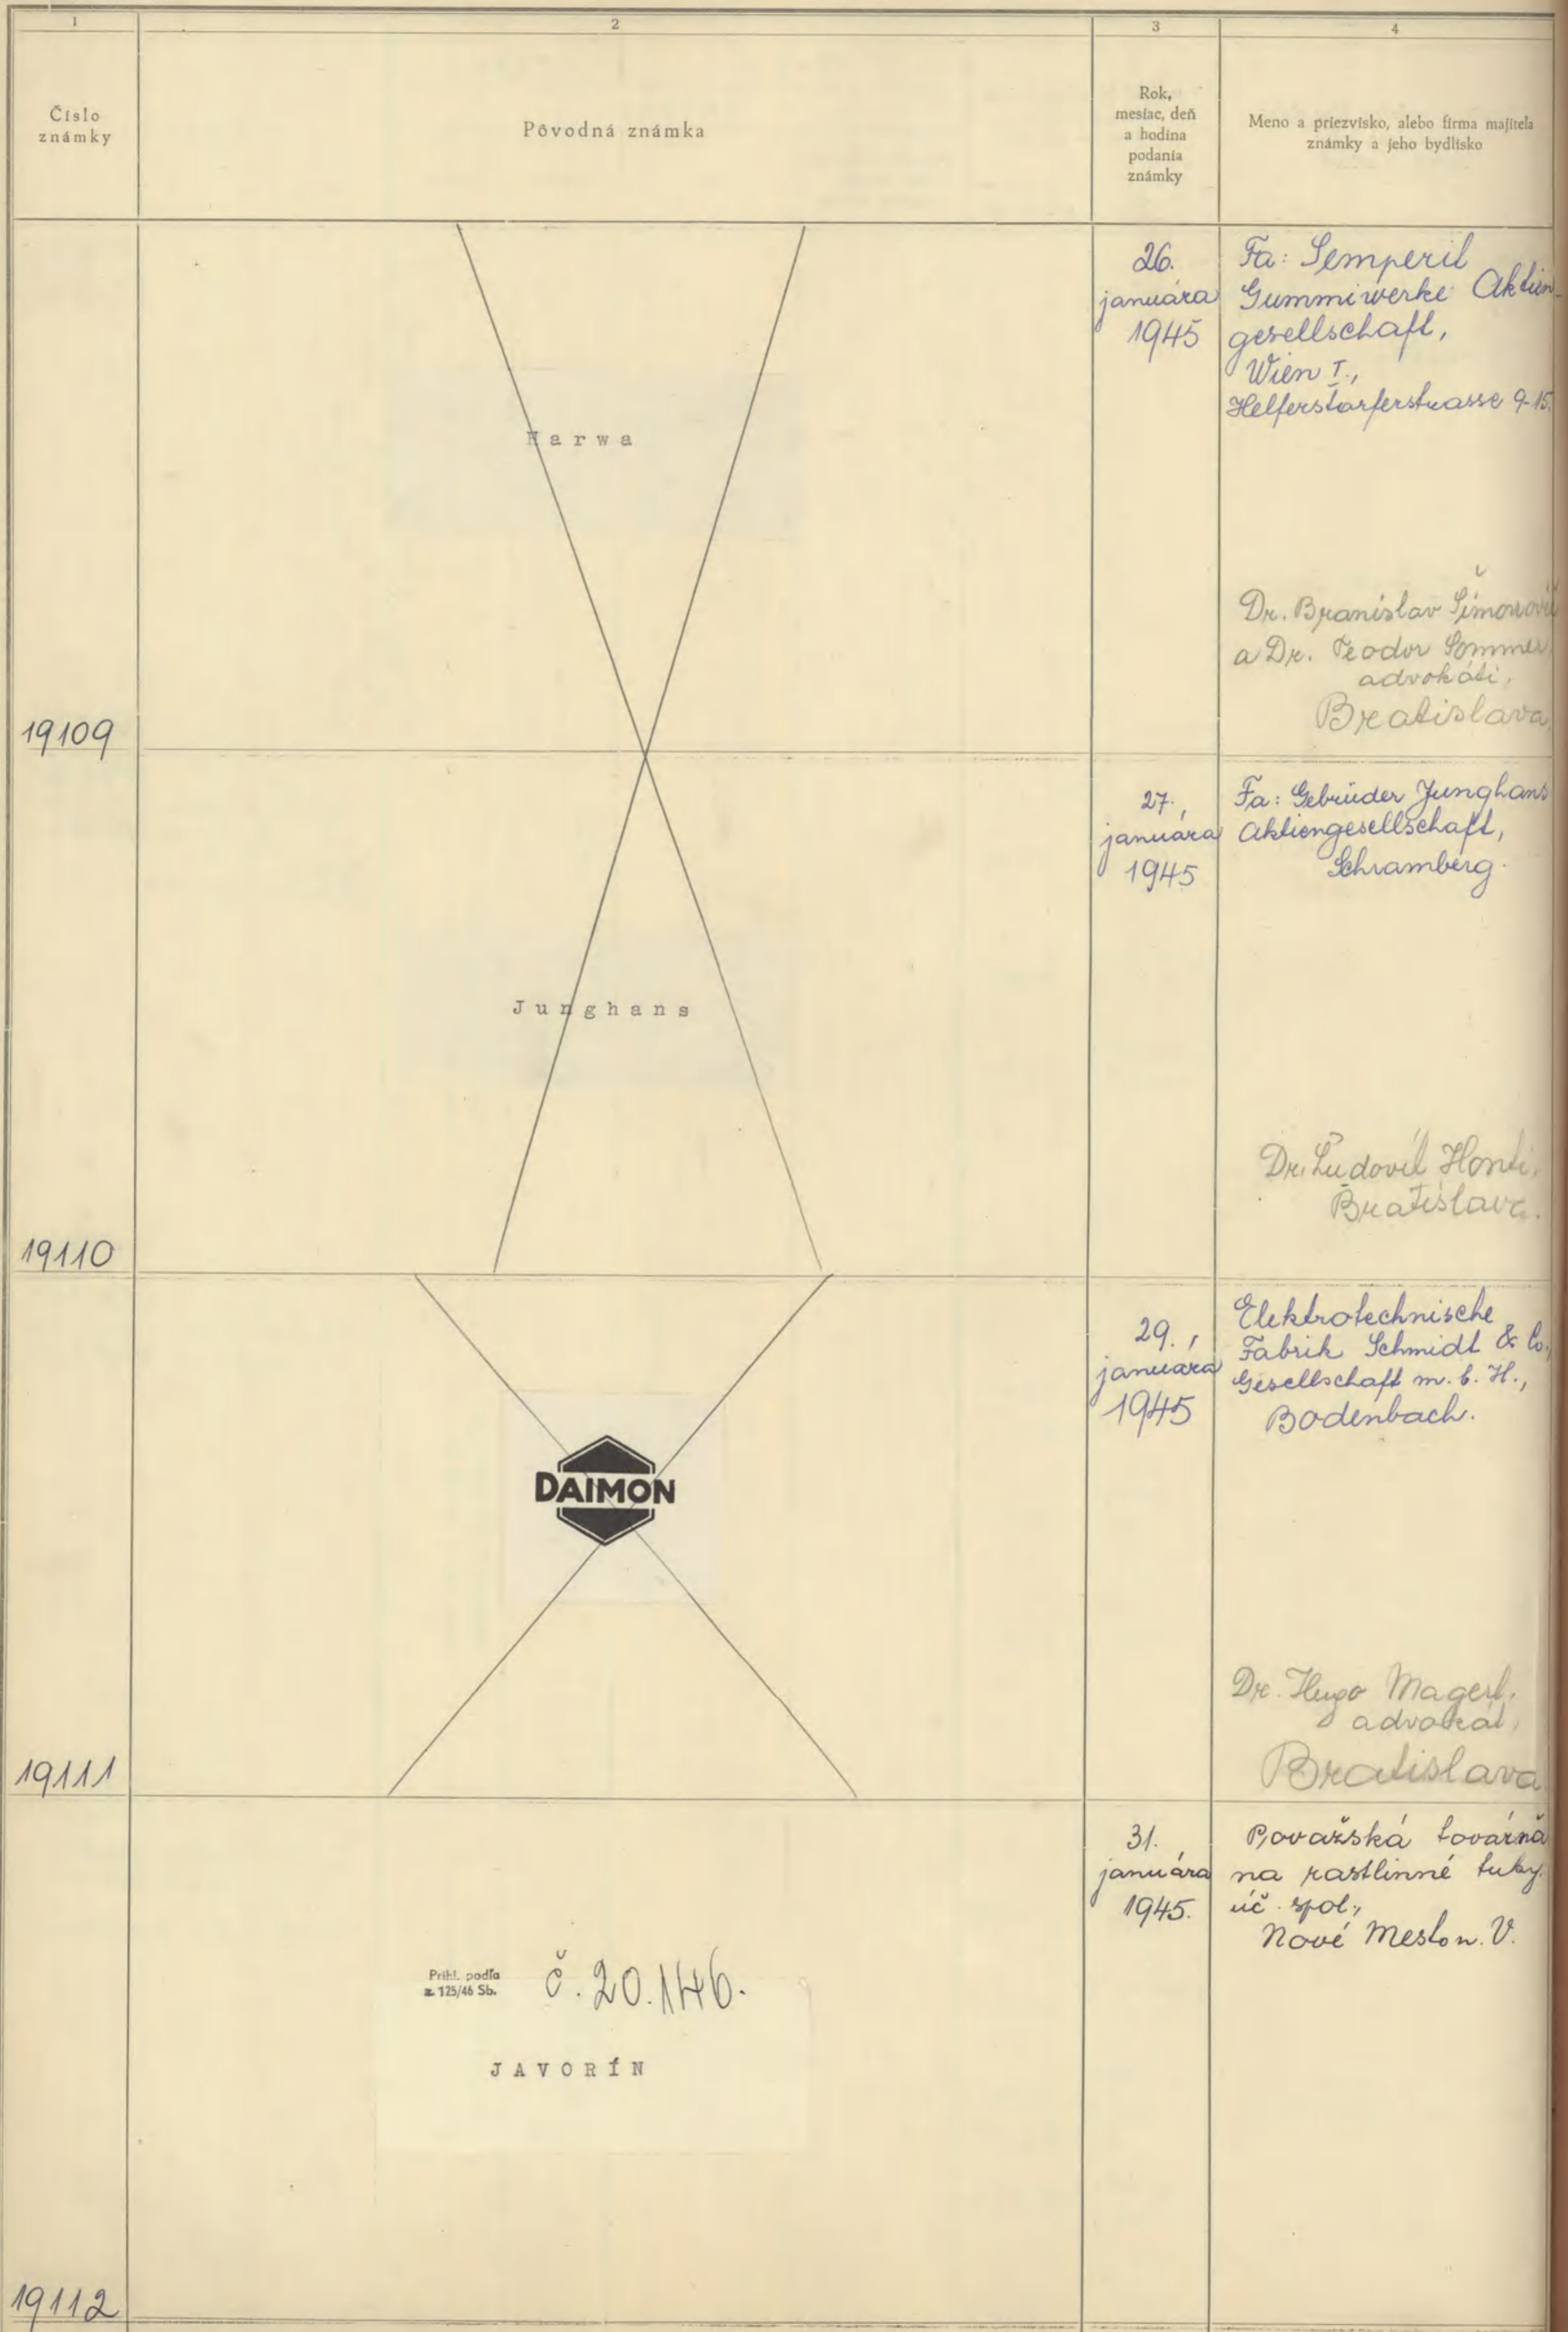 1
2
3
4
Číslo
známky
Pôvodná známka
Rok,
mesiac, deň
a hodina
podania
známky
Meno a priezvisko, alebo firma majiteľa
známky a jeho bydlisko
19109
arwa
26.
januára
1945
Fa: Semperit
Gummiwerke Aktien-
gesellschaft,
Wien I.,
Helferstorferstrasse 9-15.
Dr. Branislav Šimonovič
a Dr. Teodor Sommer
advokáti,
Bratislava
19110
Junghans
27.
januára
1945
Fa: Gebrüder Junghans
Aktiengesellschaft,
Schramberg.
Dr. Ľudovít Honti,
Bratislava.
19111
DAIMON
29.
januára
1945
Elektrotechnische
Fabrik Schmidt & Co.,
Gesellschaft m. b. H.,
Bodenbach.
Dr. Hugo Magerl,
advokát,
Bratislava
19112
Prihl. podľa
z. 125/46 Sb.
č. 20.146.
JAVORÍN
31.
januára
1945.
Považská továrňa
na rastlinné tuky
úč. spol.,
Nové Mesto n. V.